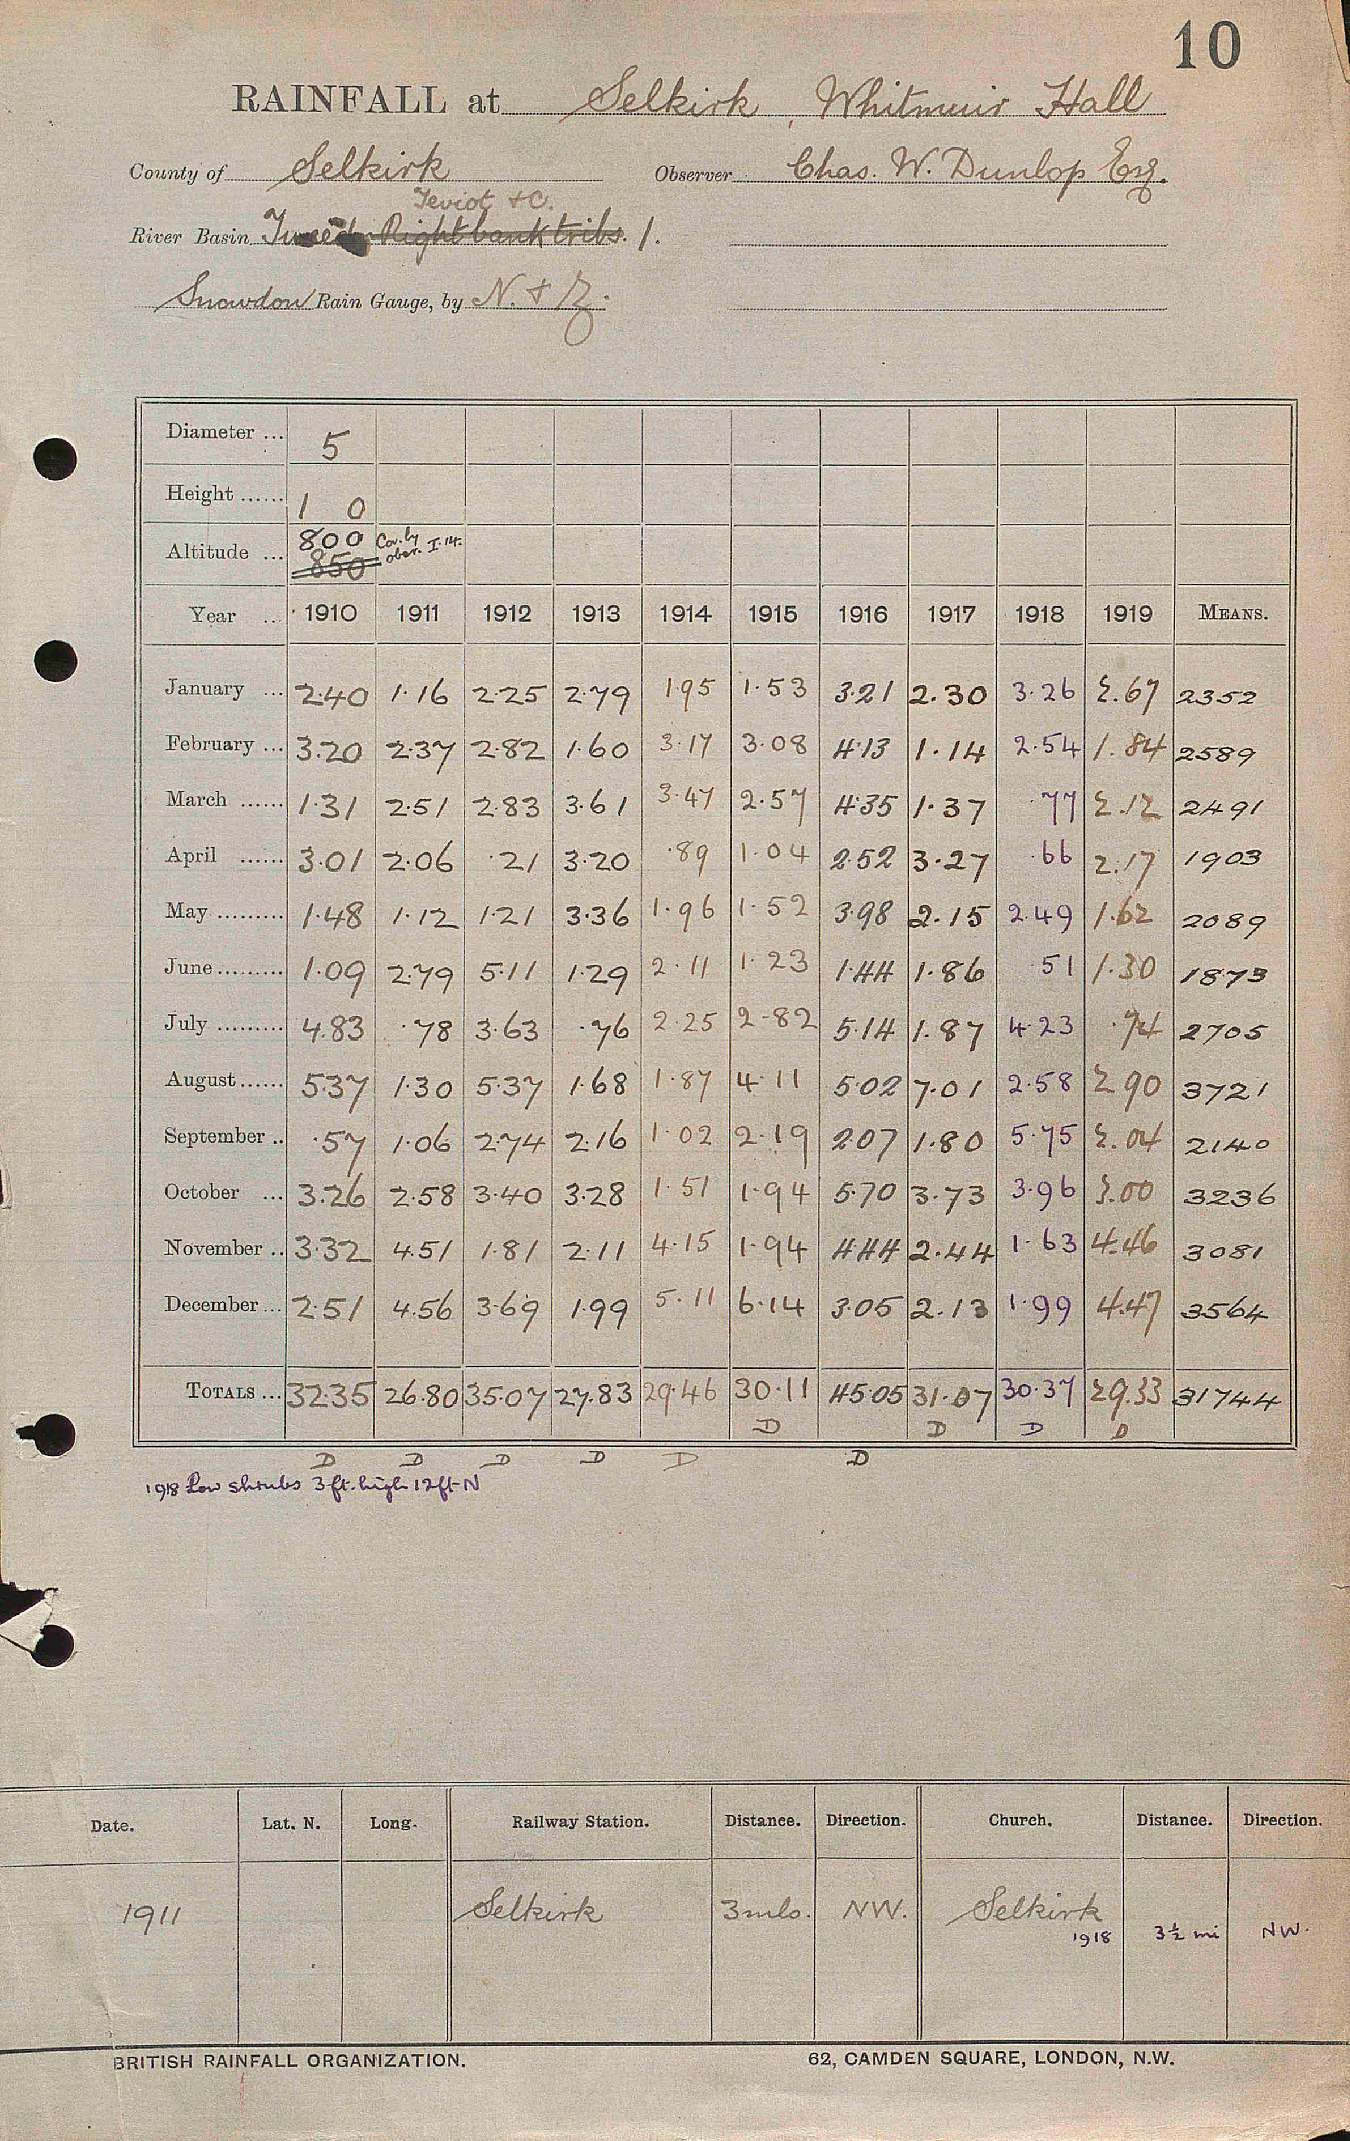 10
RAINFALL at Selkirk, Whitmuir Hall
County of Selkirk Observer Chas. W. Dunlop Esq.
Teviot &C.
River Basin Tweed Right bank tribs. 1.
Snowdon Rain Gauge, by N. & Z.
Diameter ... 5
Height ...... 1 0
Altitude ... 800 Cor. by obser. I.14.
850
Year ... 1910 1911 1912 1913 1914 1915 1916 1917 1918 1919 MEANS.
January ... 2.40 1.16 2.25 2.79 1.95 1.53 3.21 2.30 3.26 2.67 2352
February ... 3.20 2.37 2.82 1.60 3.17 3.08 4.13 1.14 2.54 1.84 2589
March ...... 1.31 2.51 2.83 3.61 3.47 2.57 4.35 1.37 .77 2.12 2491
April ...... 3.01 2.06 .21 3.20 .89 1.04 2.52 3.27 .66 2.17 1903
May ......... 1.48 1.12 1.21 3.36 1.96 1.52 3.98 2.15 2.49 1.62 2089
June ......... 1.09 2.79 5.11 1.29 2.11 1.23 1.44 1.86 .51 1.30 1873
July ......... 4.83 .78 3.63 .76 2.25 2.82 5.14 1.87 4.23 .74 2705
August ...... 5.37 1.30 5.37 1.68 1.87 4.11 5.02 7.01 2.58 2.90 3721
September .. .57 1.06 2.74 2.16 1.02 2.19 2.07 1.80 5.75 2.04 2140
October ... 3.26 2.58 3.40 3.28 1.51 1.94 5.70 3.73 3.96 3.00 3236
November .. 3.32 4.51 1.81 2.11 4.15 1.94 4.44 2.44 1.63 4.46 3081
December ... 2.51 4.56 3.69 1.99 5.11 6.14 3.05 2.13 1.99 4.47 3564
TOTALS ... 32.35 26.80 35.07 27.83 29.46 30.11 45.05 31.07 30.37 29.33 31744
D D D D
D D D D D D
1918 Low shrubs 3 ft. high 12 ft. N
Date. Lat. N. Long. Railway Station. Distance. Direction. Church. Distance. Direction.
1911 Selkirk 3 mls. NW. Selkirk
1918 3½ mi NW.
BRITISH RAINFALL ORGANIZATION. 62, CAMDEN SQUARE, LONDON, N.W.